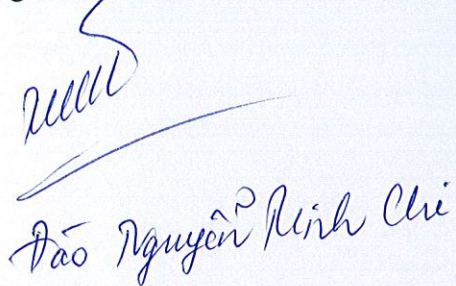 Đào Nguyễn Minh Chi